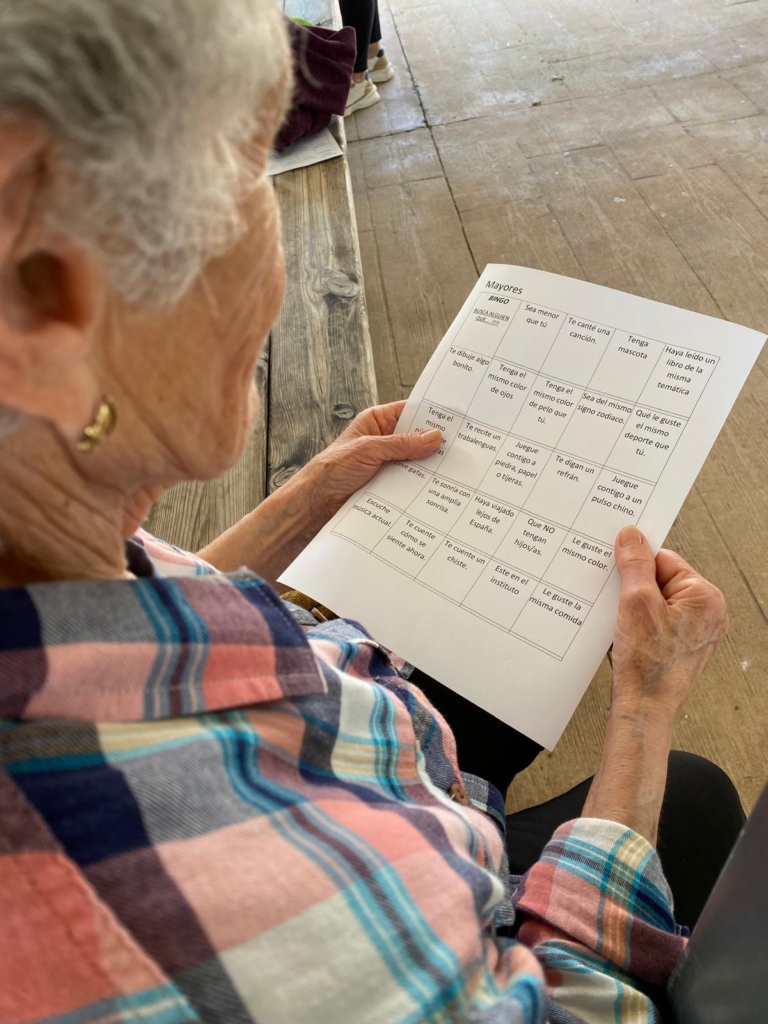 Mayores
BINGO
BUSCA ALGUIEN
QUE....!!!!
Sea menor
que tú
Te canté una
canción.
Tenga
mascota
Haya leído un
libro de la
misma
temática
Te dibuje algo
bonito.
Tenga el
mismo color
de ojos
Tenga el
mismo color
de pelo que
tú.
Sea del mismo
signo zodiaco.
Qué le guste
el mismo
deporte que
tú.
Tenga el
mismo
Te recite un
trabalenguas.
Juegue
contigo a
piedra, papel
o tijeras.
Te digan un
refrán.
Juegue
contigo a un
pulso chino.
gafas.
Te sonría con
una amplia
sonrisa.
Haya viajado
lejos de
España.
Que NO
tengan
hijos/as.
Le guste el
mismo color.
Escuche
música actual.
Te cuente
cómo se
siente ahora.
Te cuente un
chiste.
Este en el
instituto
Le guste la
misma comida